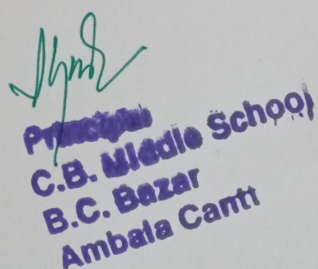 Principal
C.B. Middle School
B.C. Bazar
Ambala Cantt